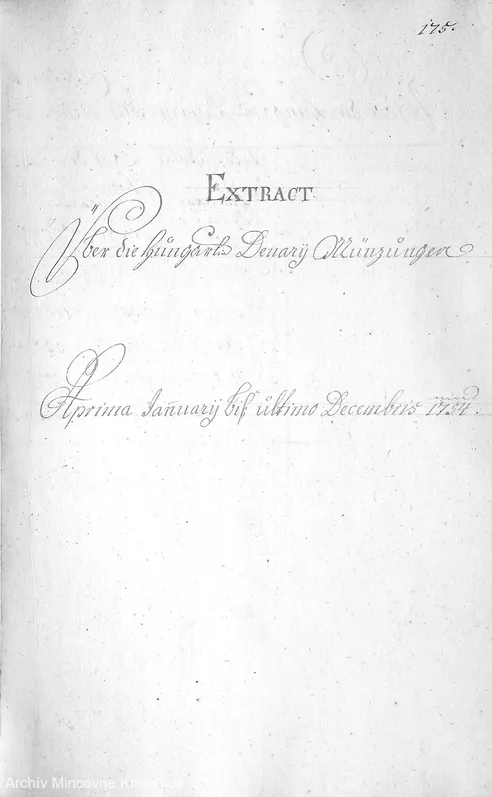 175.
EXTRACT.
Über die Hungarln Denarÿ Münzůngen
A prima Januarÿ biß ůltimo Decembris 1754.
Archív Mincovne Kremnica